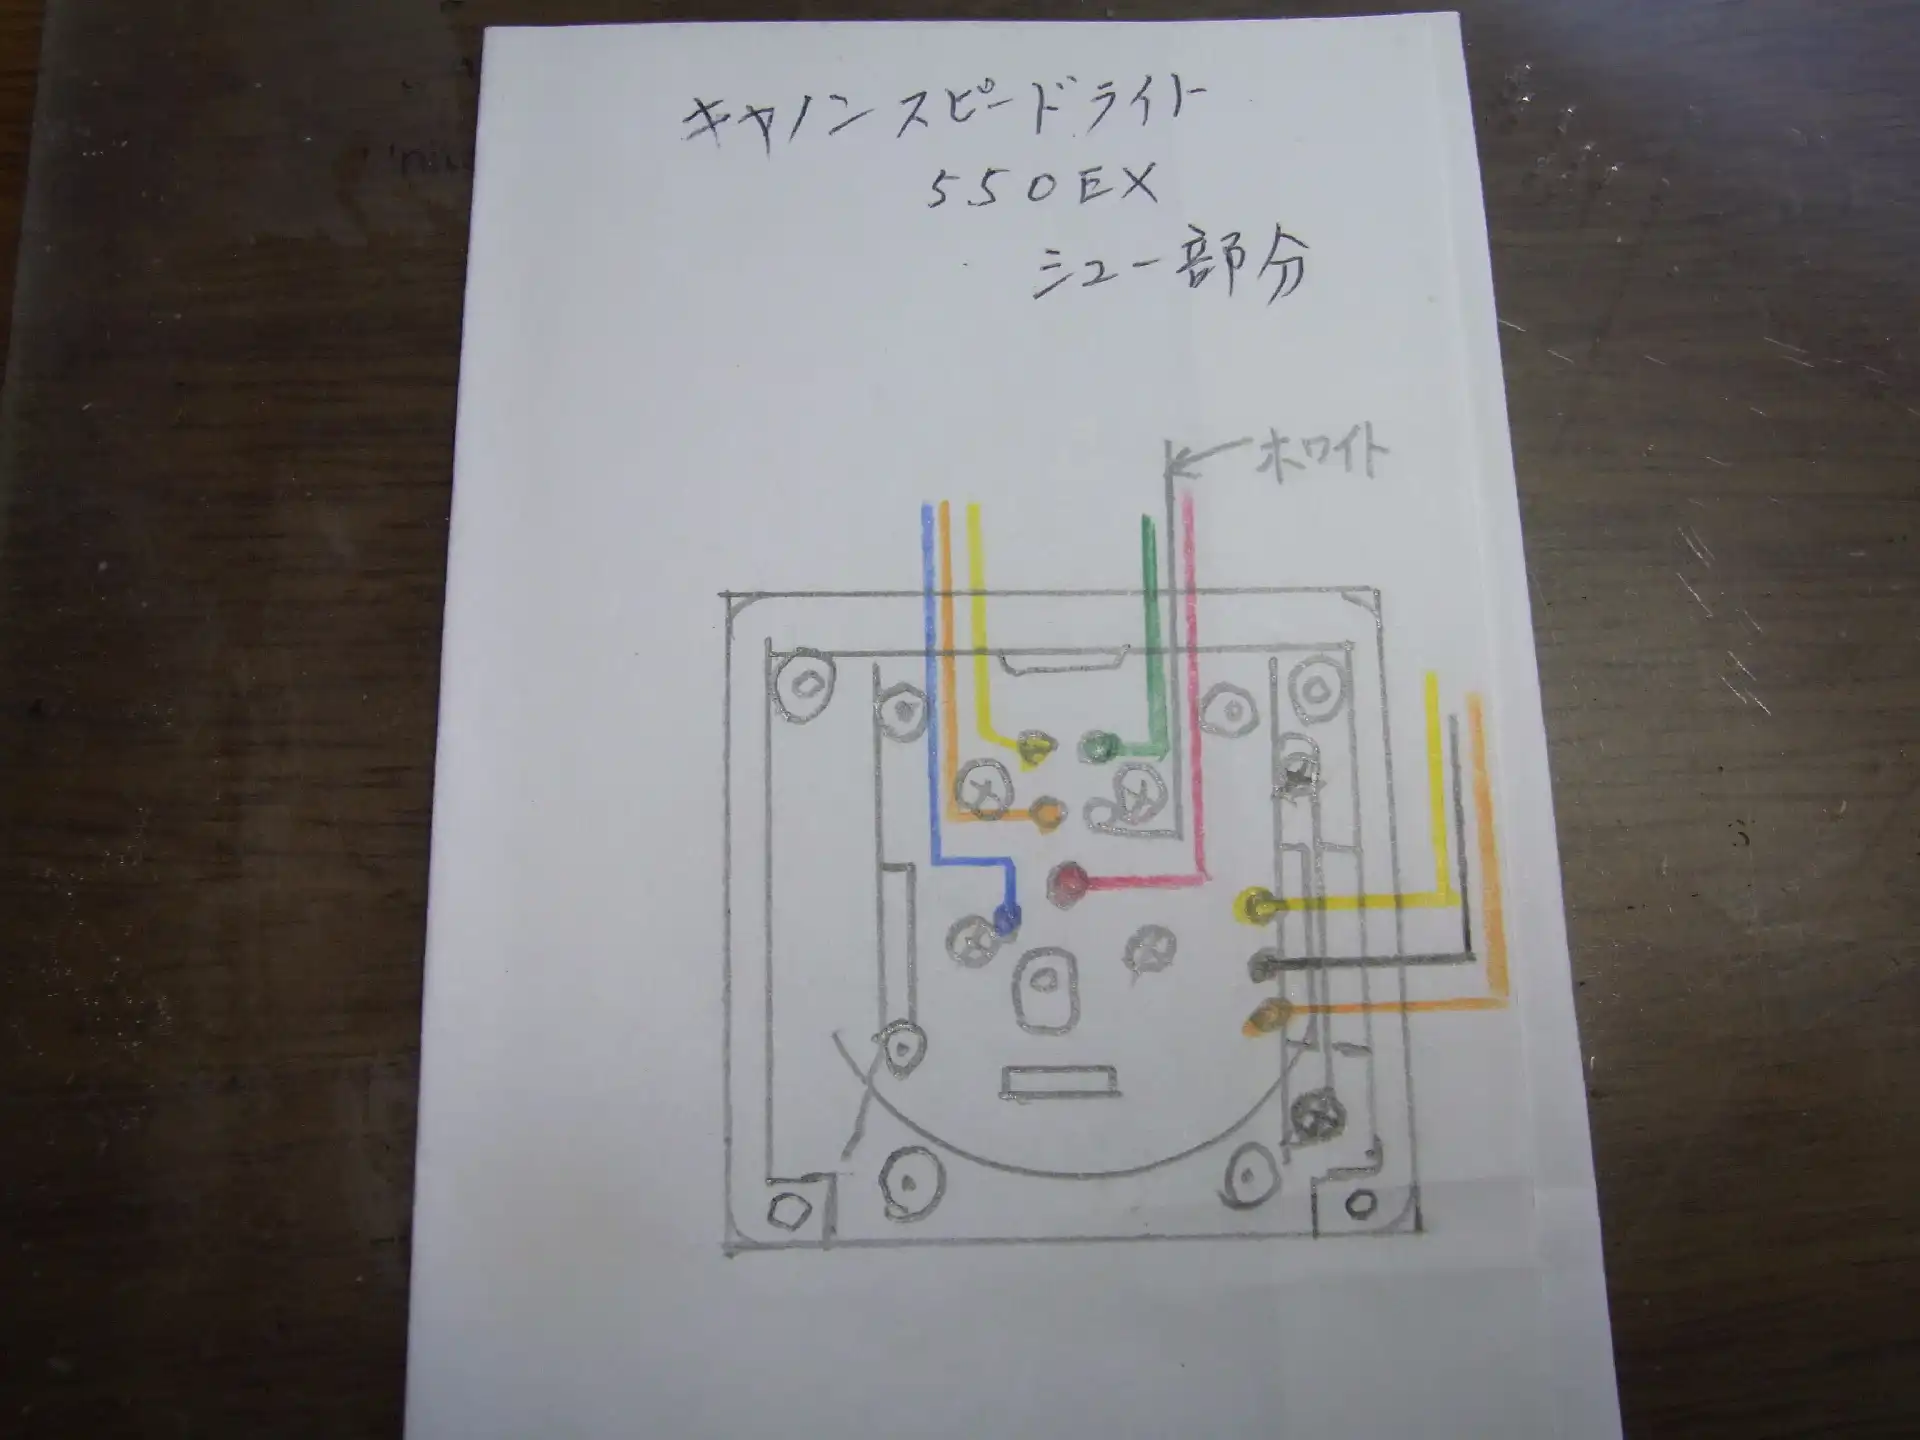 キヤノンスピードライト
550EX
シュー部分
ホワイト